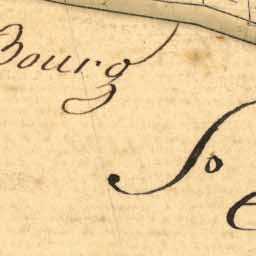 Bourg
So